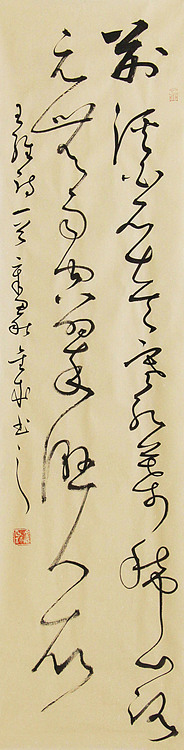 荊溪白石出天寒紅葉稀山路
元無雨空翠濕人衣
王維詩一首辛卯秋書之